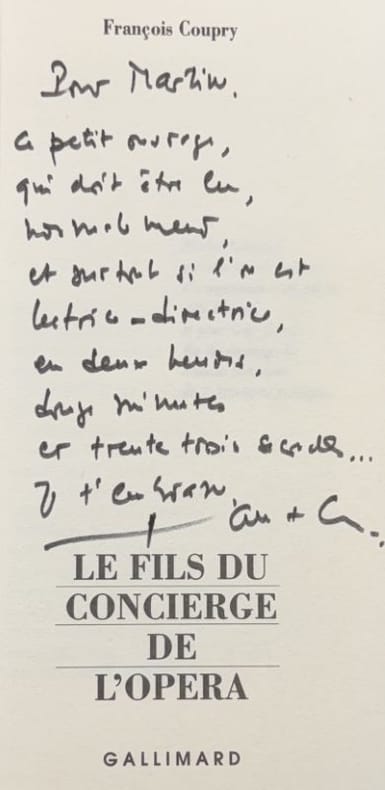 François Coupry
Pour Martin.
Ce petit ouvrage,
qui doit être lu,
normalement,
et surtout si l'on est
lectrice-directrice,
en deux heures,
douze minutes
et trente trois secondes...
Je t'embrasse,
LE FILS DU
CONCIERGE
DE
L'OPERA
GALLIMARD